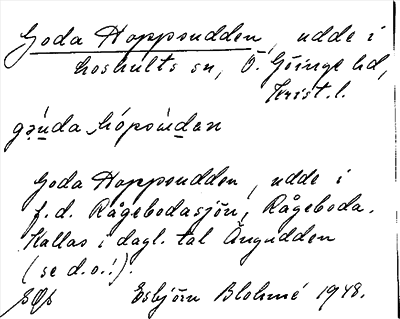 Goda Hoppsudden, udde i
Loshults sn, Ö. Göinge hd,
Krist. l.
Goda Hoppsudden, udde i
f.d. Rågebodasjön, Rågeboda.
Kallas i dagl. tal Ängudden
(se d.o.!).
Esbjörn Blohmé 1948.